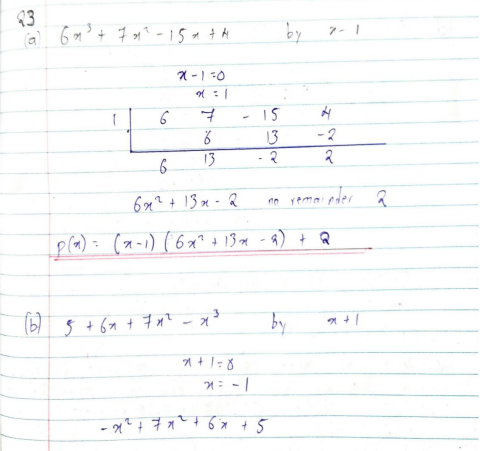 Q3
(a) 6x³ + 7x² - 15x + 4 by x - 1
x - 1 = 0
x = 1
1 | 6 7 - 15 4
6 13 -2
6 13 -2 2
6x² + 13x - 2 no remainder 2
p(x) = (x-1) (6x² + 13x - 2) + 2
(b) 5 + 6x + 7x² - x³ by x + 1
x + 1 = 0
x = -1
-x² + 7x² + 6x + 5